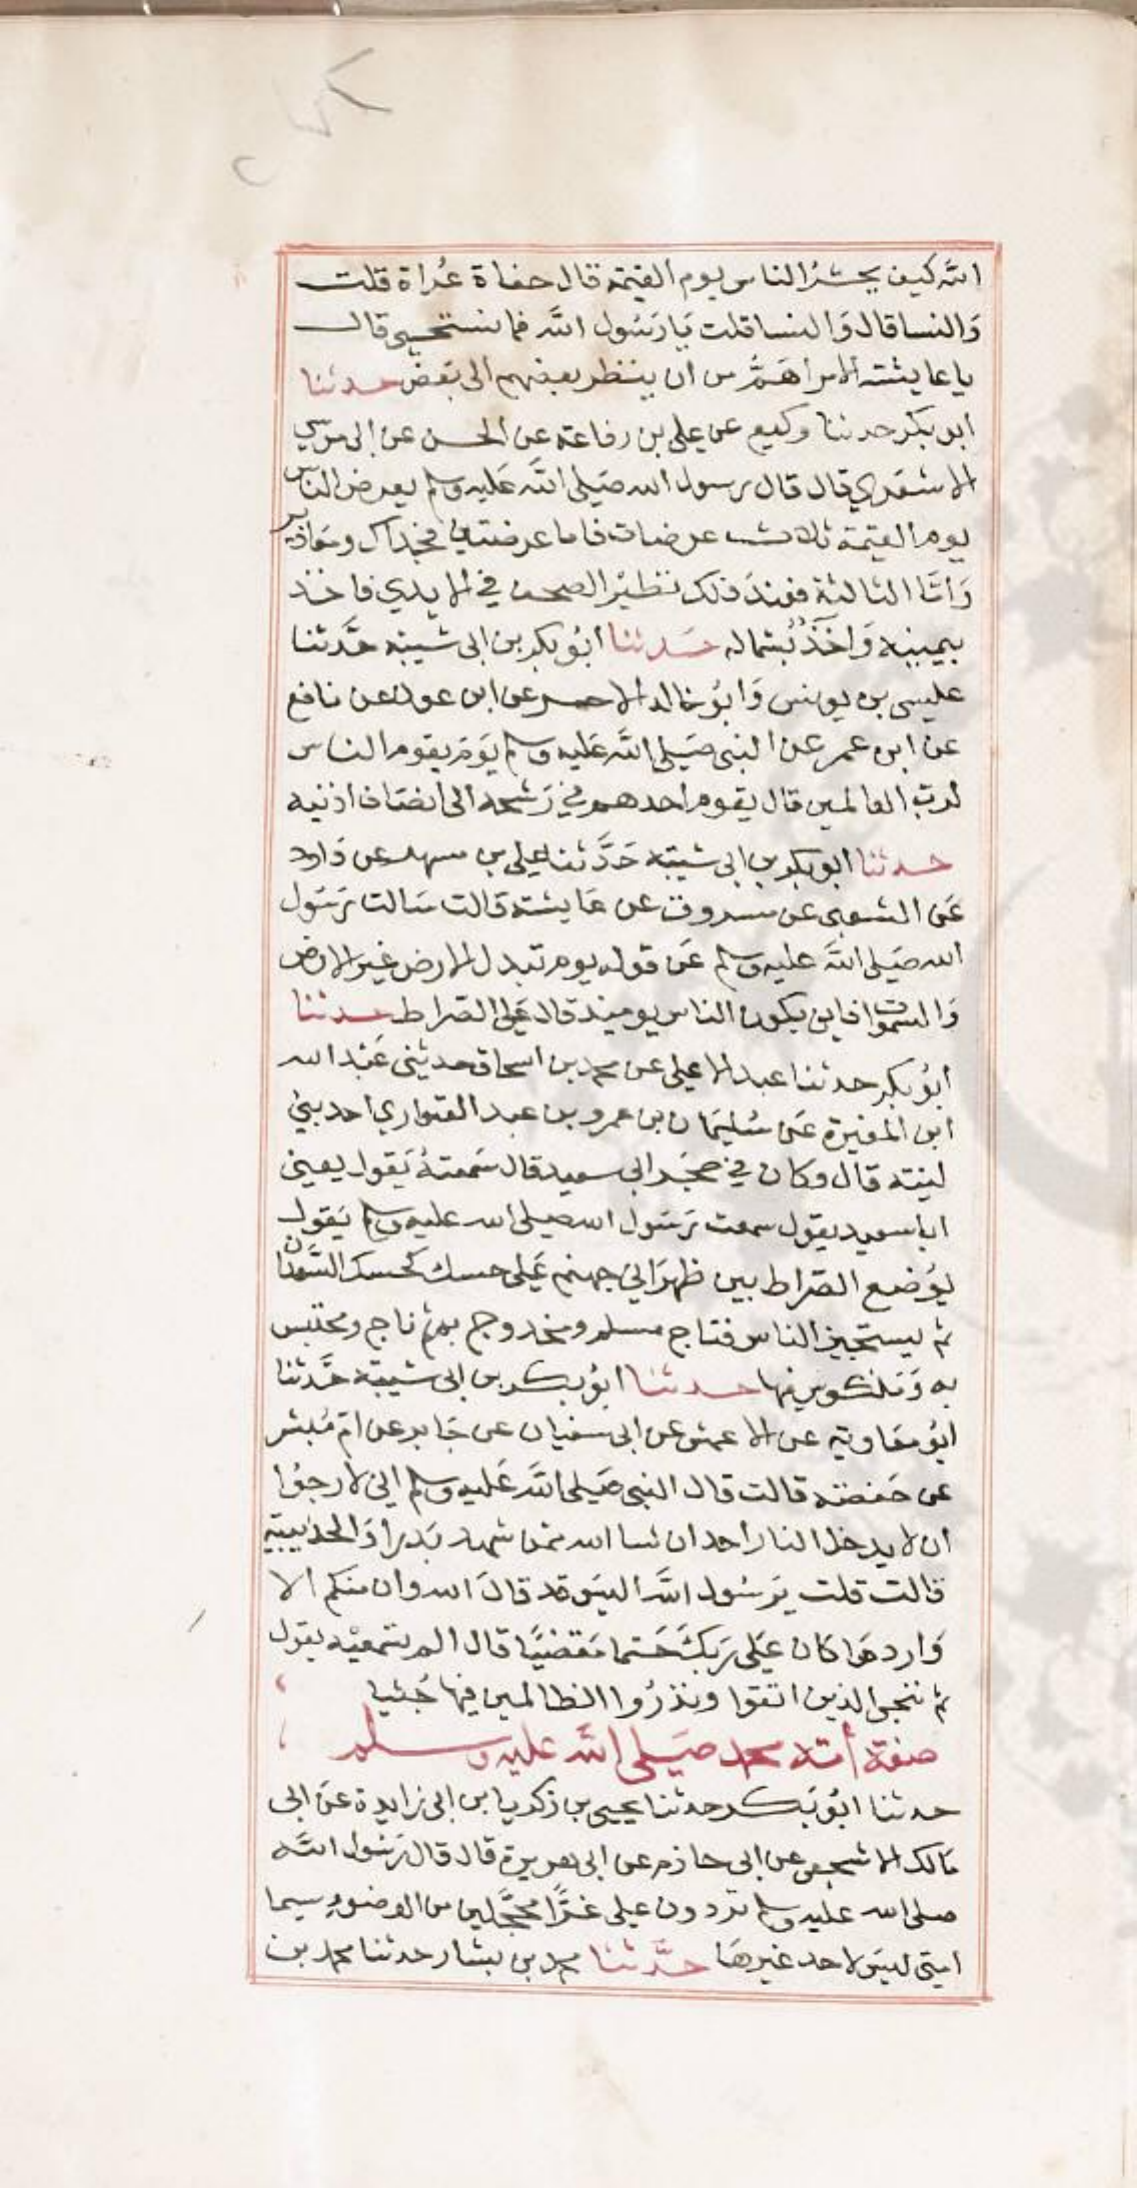 الله كيف يحشر الناس يوم القيمة قال حفاة عُراة قلت
وَالنسا قال وَالنسا قلت يَا رَسُول الله فما نستحيي قال
يا عايشته الامر اهَمُّ من ان ينظر بعضهم الى بَعض حدثنا
ابو بكر حدثنا وكيع عن علي بن رفاعة عن الحسن عن ابى موسي
الاشعَري قال قال رسول الله صَلى الله عَليه وسلم يعرض الناس
يوم القيمة ثلاث عرضات فاما عرضتان فجدال ومعاذير
وَامَّا الثالثة فعندَ ذلك تطيرُ الصحف في الايدي فاخذ
بيمينه وَاخذ بُشماله حَدثنا ابُو بكر بن ابى شيبة حَّدثنا
عليسى بن يونس وَابوُ خالد الاحمر عن ابن عون عن نافع
عن ابن عمر عن النبى صَلى الله عَليه وسلم يَومَ يقوم الناس
لرب العالمين قال يقوم احدهم في رَشحه الى انصَاف اذنيه
حدثنا ابو بكر بن ابى شيبَة حَدَّثنا علي بن مسهر عن دَاود
عَن الشعبى عن مسروق عن عَايشة قالت سَالت رَسَول
الله صَلى الله عليه وسلم عَن قوله يوم تبدل الارض غير الارض
وَالسموات فاين يكون الناس يوميذ قال عَلى الصراط حدثنا
ابُو بكر حدثنا عبد الاعلى عن محمد بن اسحاق حدثني عَبد الله
ابن المغيرة عَن سُليمَان بن عمرو بن عبد العتواري احد بني
ليته قال وكان في حجَر ابى سعيد قال سَمعتهُ يَقول يعني
ابا سعيد يقول سمعت رَسَول الله صلى الله عليه وسلم يَقول
يوُضع الصَراط بين ظهرَاني جهنم عَلى حسك كحسك السَّعدان
ثم يستجيز الناس فتاج مسلم ومخدوج بهثم ناج ومحتبس
به وَمنكوس فيها حدثنا ابوُ بكر بن ابى شيبَة حَّدثنا
ابُو معَاوية عن الاعمش عن ابى سفيان عن جَابر عن امّ مُبشر
عن حَفصَة قالت قال النبى صَلى الله عَليه وسلم انى لارجوُا
ان لا يدخل النار احد ان شا الله ممن شهد بَدرا وَالحدَيبية
قالت قلت يرَسُول الله اليسَ قد قالَ الله وان منكم الا
وَاردهَا كان عَلى رَبكَ حَتما مَقضيًا قال الم تسَمعيْه يقول
ثم ننجي الذين اتقوا ونذرُ واالظالمين فيها جُثيا
صفة أمة محمد صَلى الله عليه وسلم
حدثنا ابُو بَكر حدثنا يحيى بن زكريا بن ابى زايدة عَن ابى
مَالك الاشجعى عن ابى حازم عن ابى هريرة قال قال رَسُول الله
صلى الله عليه وسلم تردون على غرًّا محجَّلين من الوضوء سيما
امتى ليسَ لاحد غيرهَا حدَّثنا محمد بن بشار حدثنا محمد بن